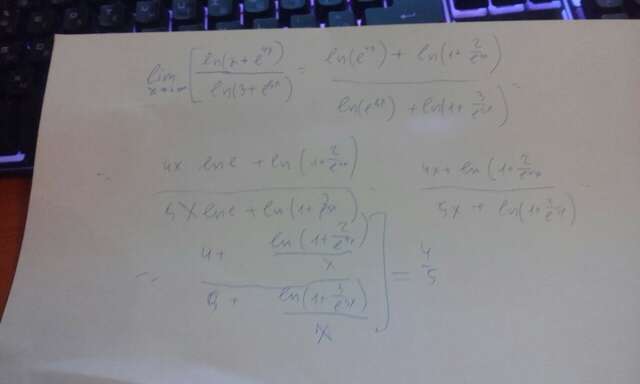 lim x→∞ [ ln(2+e^4x) / ln(3+e^5x) = (ln(e^4x) + ln(1+2/e^4x)) / (ln(e^5x) + ln(1+3/e^5x)) =
= (4x lne + ln(1+2/e^4x)) / (5x lne + ln(1+3/e^5x)) = (4x + ln(1+2/e^4x)) / (5x + ln(1+3/e^5x)) =
= (4 + ln(1+2/e^4x)/x) / (5 + ln(1+3/e^5x)/x) ] = 4/5